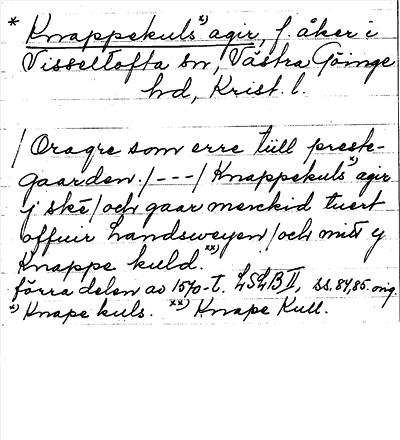 * Knappekuls x) agir, f. åker i
Visseltofta sn, Västra Göinge
hd, Krist. l.
/ Oragre som erre tiill preste-
gaarden:/---/ Knappekuls x) agir
j ské / och gaar menckid tuert
offuir Landsweyen / och mitt y
Knappe kuld. xx)
förra delen av 1570-t. LSLB II, ss. 84, 85. orig.
x) Knape kuls. xx) Knape Kull.